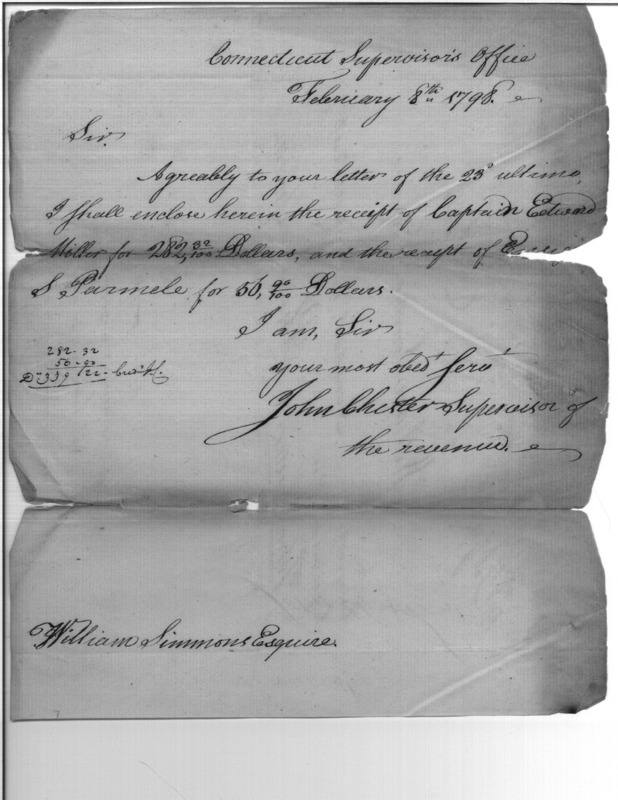 Connecticut Supervisor's Office
February 8th 1798.
Sir.
Agreably to your letter of the 23d ultimo,
I shall enclose herein the receipt of Captain Edward
Miller for 282, 32/100 Dollars, and the receipt of
S Parmele for 56, 90/100 Dollars.
I am, Sir
your most obedt Servt
John Chester Supervisor of
the revenue.
282.32
56.90
Drs 339 /22
William Simmons Esquire.